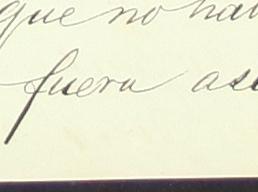 que no hab
fuera así